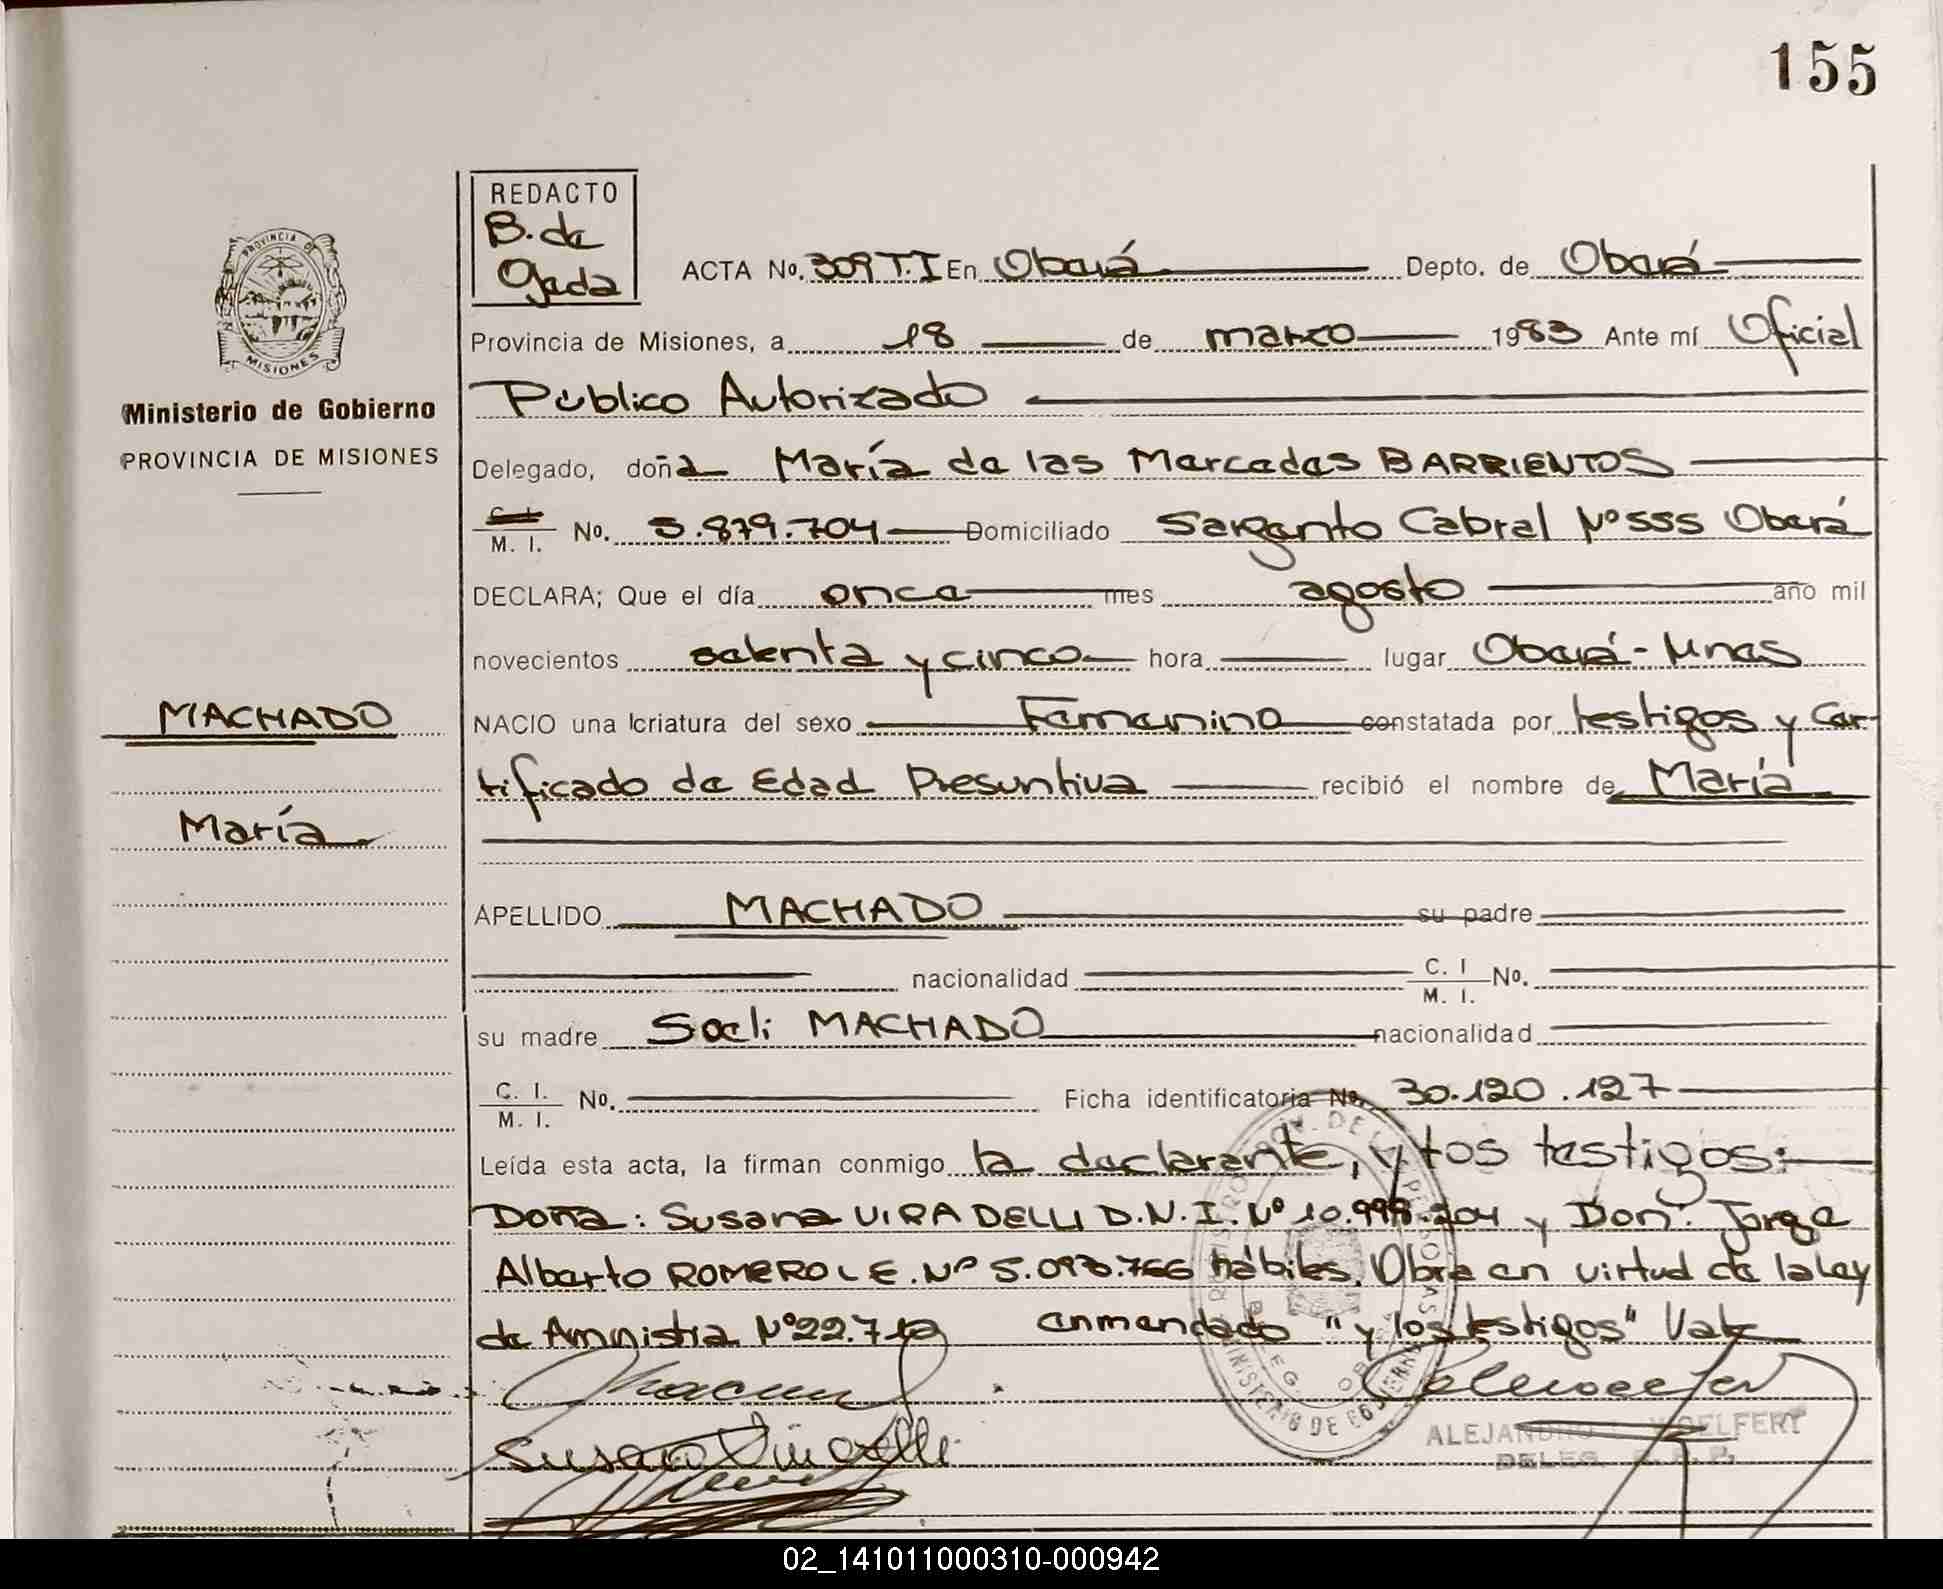 155
REDACTO
B. de
Ojeda
ACTA No. 309 T.I En Oberá Depto. de Oberá
Provincia de Misiones, a 18 de marzo 1983 Ante mí Oficial
Público Autorizado
Ministerio de Gobierno
PROVINCIA DE MISIONES
Delegado, doña María de las Mercedes BARRIENTOS
C. I.
M. I. No. 5.879.704 Domiciliado Sargento Cabral Nº 555 Oberá
DECLARA; Que el día once mes agosto año mil
novecientos setenta y cinco hora lugar Oberá - Mnes
MACHADO
NACIO una criatura del sexo Femenino constatada por testigos y Cer-
tificado de Edad Presuntiva recibió el nombre de María
María
APELLIDO MACHADO su padre
nacionalidad C. I M. I. No.
su madre Soeli MACHADO nacionalidad
C. I. M. I. No. Ficha identificatoria No. 30.120.127
Leída esta acta, la firman conmigo la declarante, y los testigos:
Doña: Susana VIRADELLI D.N.I. Nº 10.998.204 y Don: Jorge
Alberto ROMERO L E. Nº 5.093.766 hábiles. Obra en virtud de la ley
de Amnistia Nº 22.712 enmendado "y los testigos" Vale
ALEJANDRO
DELEG. R. P.
02_141011000310-000942